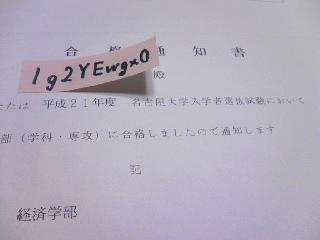 合格通知書
1g2YEwgx0
殿
たは 平成21年度 名古屋大学入学者選抜試験において
部（学科・専攻）に合格しましたので通知します
記
経済学部